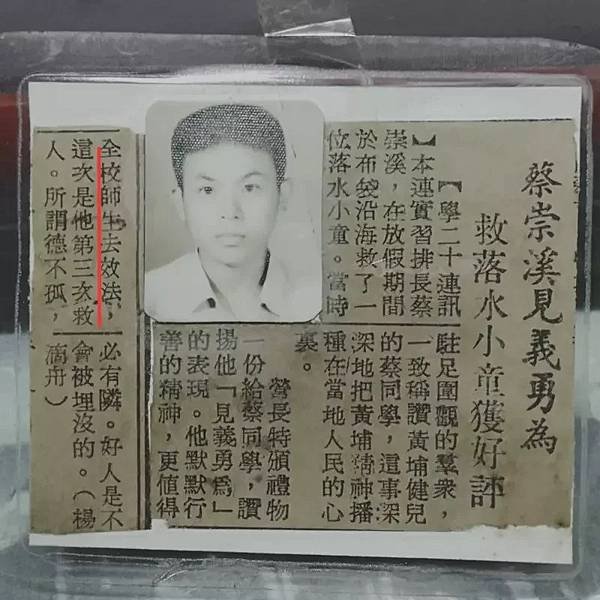 蔡崇溪見義勇為
救落水小童獲好評
【學二十連訊
】本連實習排長蔡
崇溪，在放假期間
於布袋沿海救了一
位落水小童。當時
駐足圍觀的羣衆，
一致稱讚黃埔健兒
的蔡同學，這事深
深地把黃埔精神播
種在當地人民的心
裏。
營長特頒禮物
一份給蔡同學，讚
揚他「見義勇爲」
的表現。他默默行
善的精神，更值得
全校師生去效法，
這次是他第三次救
人。所謂德不孤，
必有隣。好人是不
會被埋沒的。（楊
滴舟）